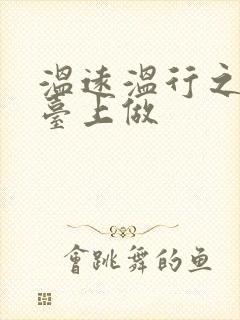 温遠溫行之
臺上做
會跳舞的鱼